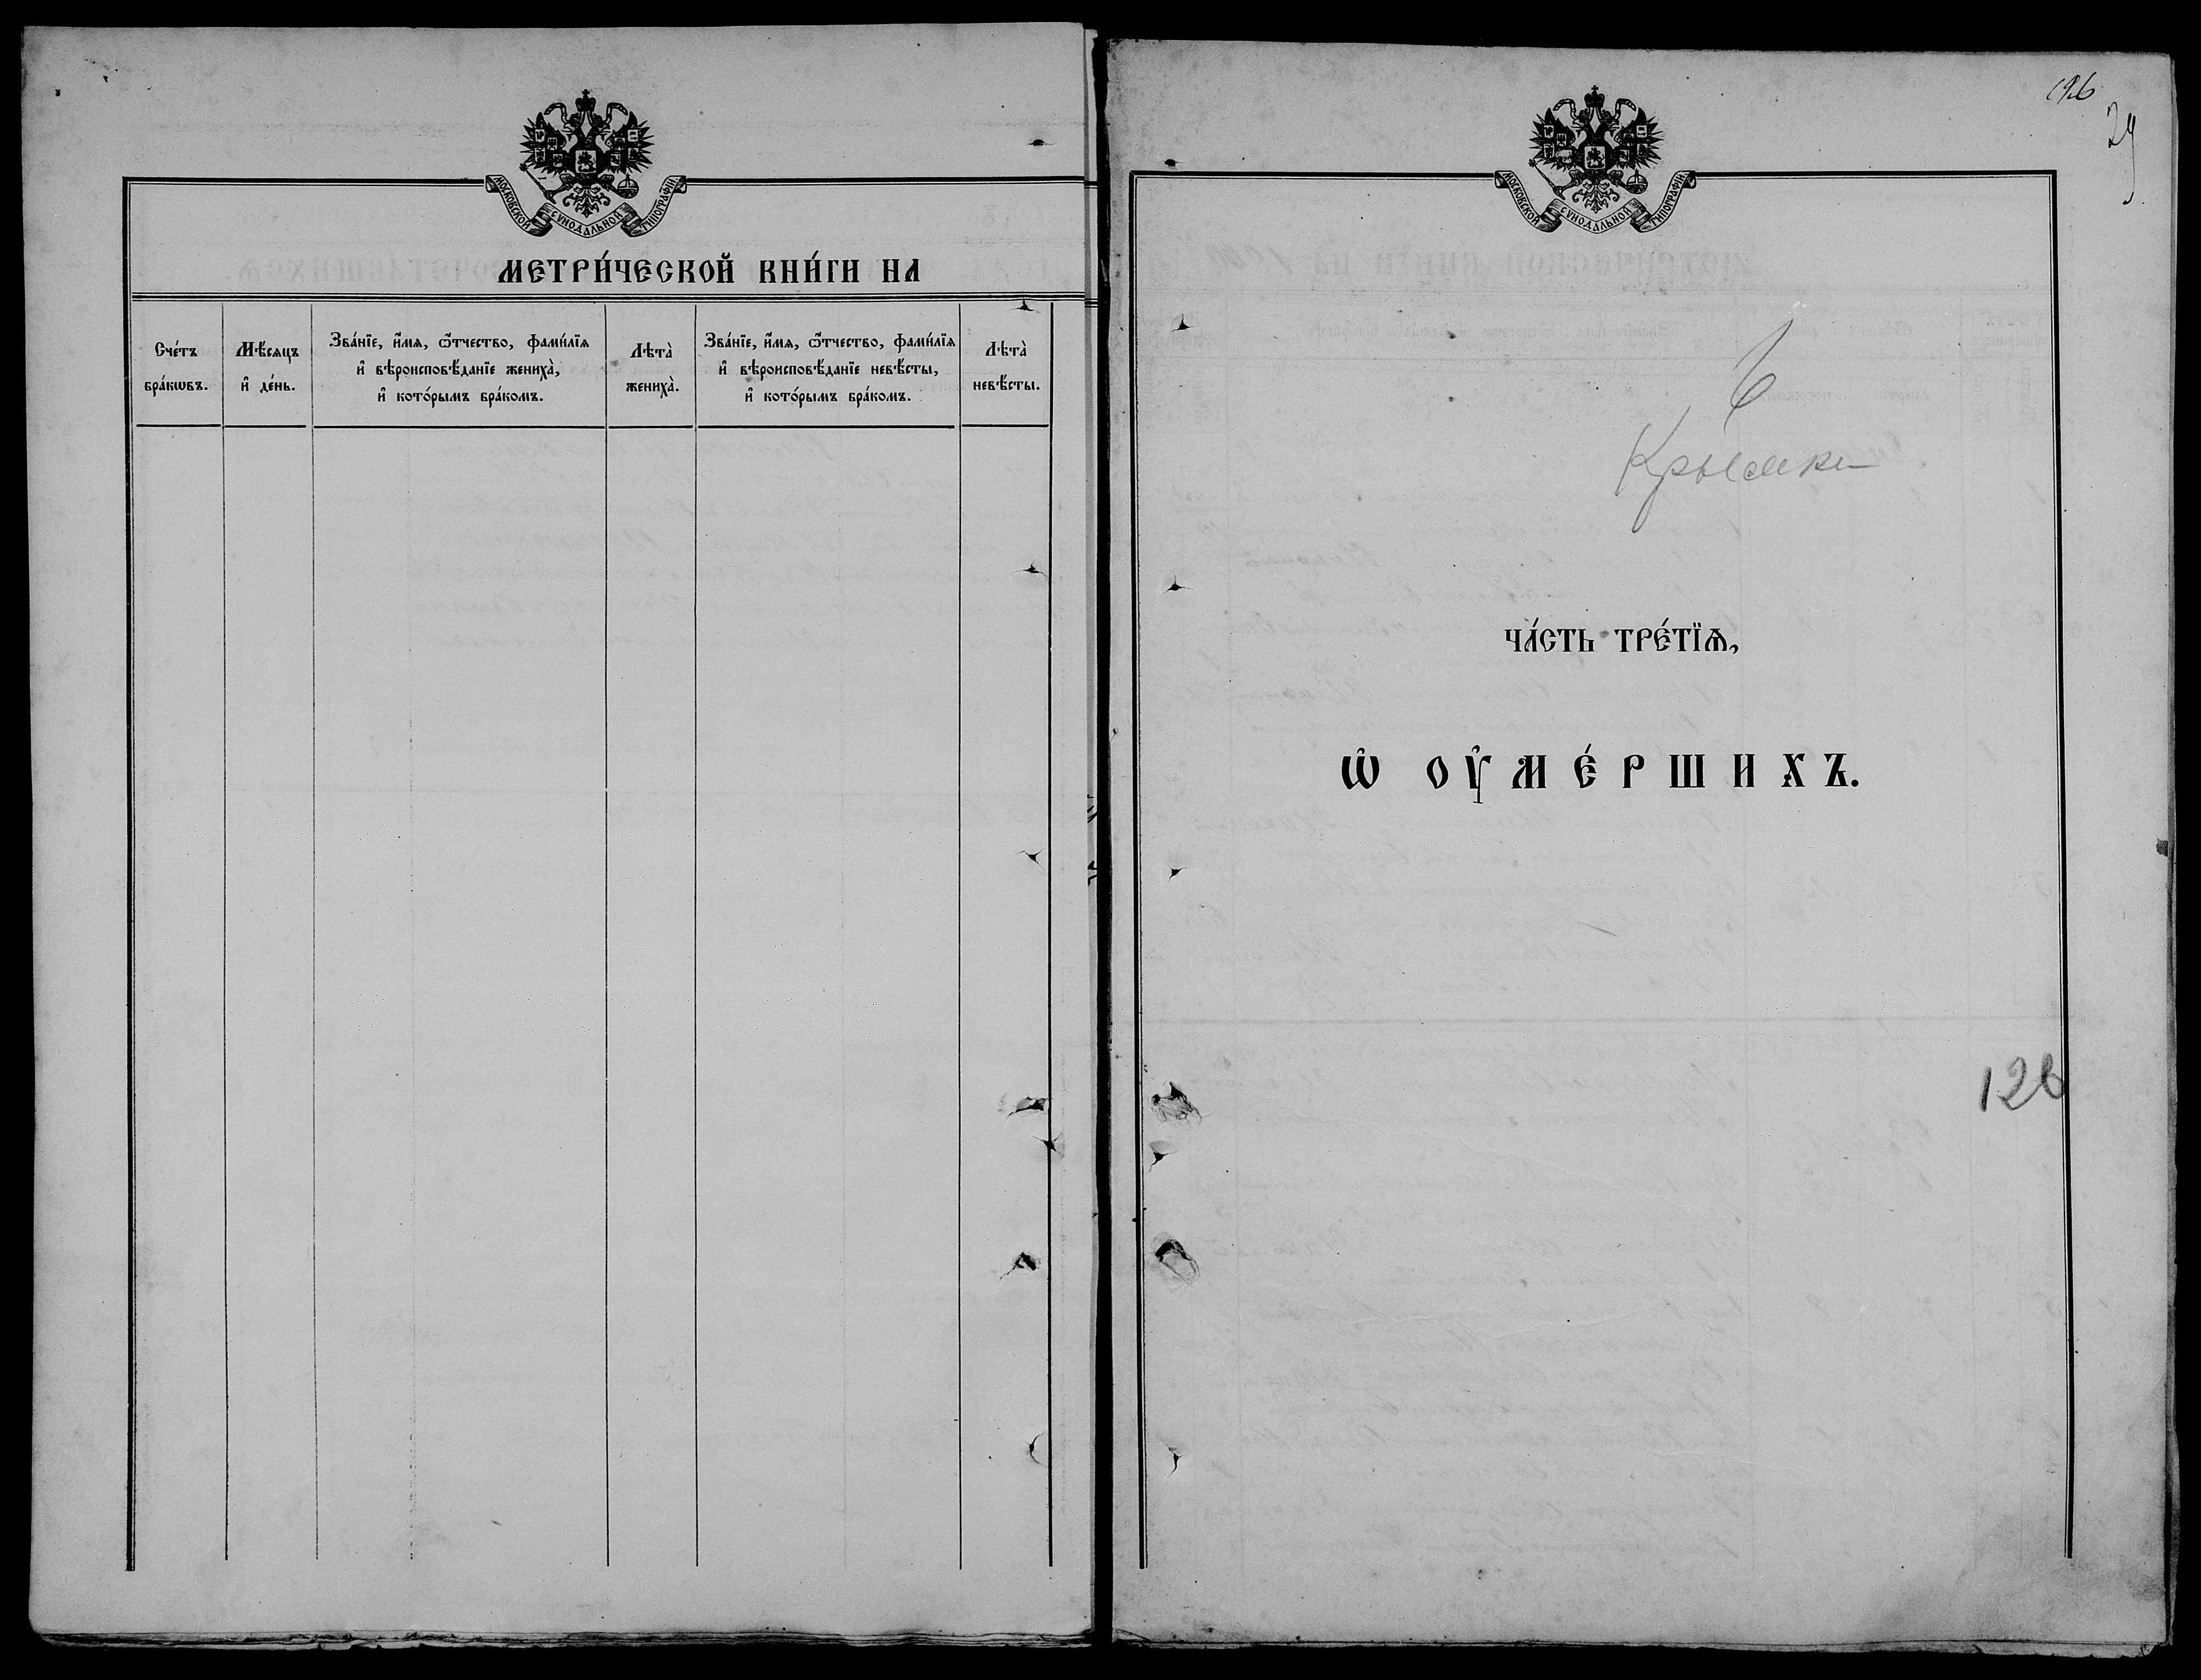 МОСКОВСКОЙ СѴНОДАЛЬНОЙ ТИПОГРАФІИ
МЕТРИ́ЧЕСКОЙ КНИ́ГИ НА
Сче́тъ бра́кѡвъ.
Мѣ́сѧцъ и҆ де́нь.
Зва́нїе, и҆́мѧ, ѻ҆́тчество, фами́лїѧ
и҆ вѣроисповѣ́данїе жениха̀,
и҆ кото́рымъ бра́комъ.
Лѣта̀ жениха̀.
Зва́нїе, и҆́мѧ, ѻ҆́тчество, фами́лїѧ
и҆ вѣроисповѣ́данїе невѣ́сты,
и҆ кото́рымъ бра́комъ.
Лѣта̀ невѣ́сты.
196
29
МОСКОВСКОЙ СѴНОДАЛЬНОЙ ТИПОГРАФІИ
6
ЧА́СТЬ ТРЕ́ТЇѦ,
Ѡ҆ ОУ҆МЕ́РШИХЪ.
126